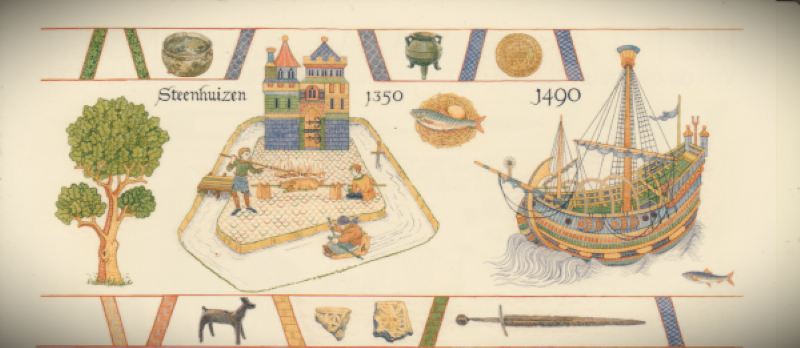 Steenhuizen
1350
1490